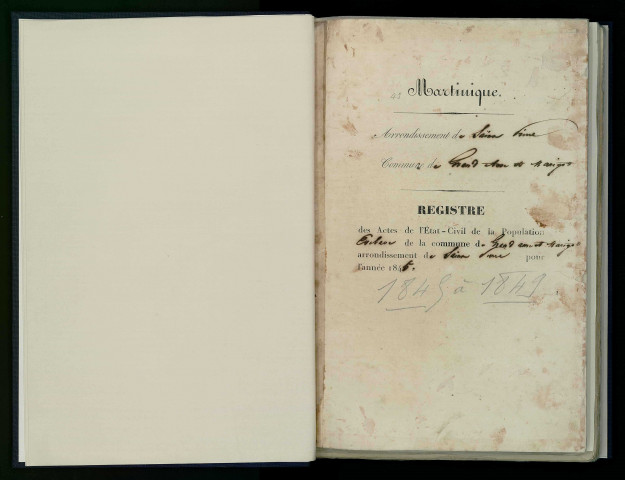 Martinique.
Arrondissement de Saint Pierre
Commune de Grand Anse et Marigot
REGISTRE
des Actes de l'État-Civil de la Population
Esclave de la commune de Grand anse et Marigot
arrondissement de Saint Pierre pour
l'année 1845.
1845 à 1849